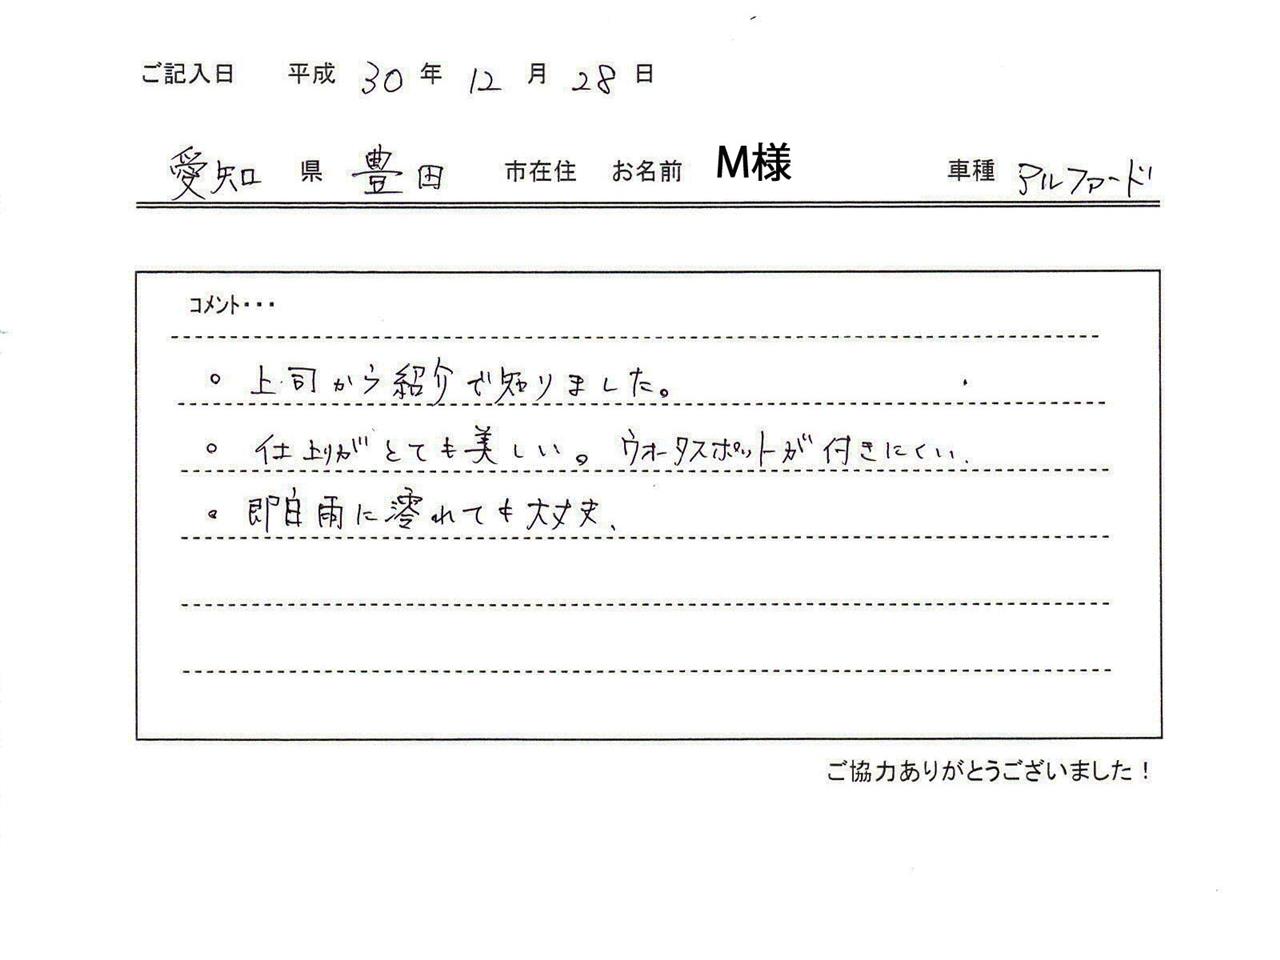 ご記入日 平成 30 年 12 月 28 日
愛知 県 豊田 市在住 お名前 M様 車種 アルファード
コメント・・・
。上司から紹介で知りました。
。仕上りがとても美しい。ウォータスポットが付きにくい.
・即日雨に濡れても大丈夫、
ご協力ありがとうございました！